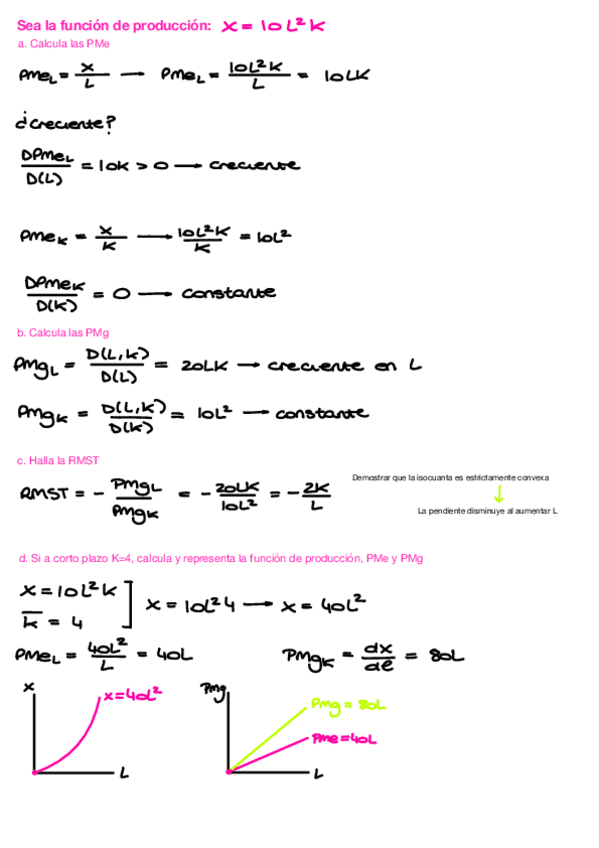 Sea la función de producción: X = 10L²K
a. Calcula las PMe
PMe_L = X/L → PMe_L = 10L²K/L = 10LK
¿creciente?
DPMe_L/D(L) = 10K > 0 → creciente
PMe_K = X/K → 10L²K/K = 10L²
DPMe_K/D(K) = 0 → constante
b. Calcula las PMg
PMg_L = D(L,K)/D(L) = 20LK → creciente en L
PMg_K = D(L,K)/D(K) = 10L² → constante
c. Halla la RMST
Demostrar que la isocuanta es estrictamente convexa
RMST = - PMg_L/PMg_K = - 20LK/10L² = - 2K/L
↓
La pendiente disminuye al aumentar L
d. Si a corto plazo K=4, calcula y representa la función de producción, PMe y PMg
X = 10L²K
K̅ = 4
] X = 10L²4 → X = 40L²
PMe_L = 40L²/L = 40L
PMg_K = dx/de = 80L
X
X = 40L²
L
PMg
PMg = 80L
PMe = 40L
L